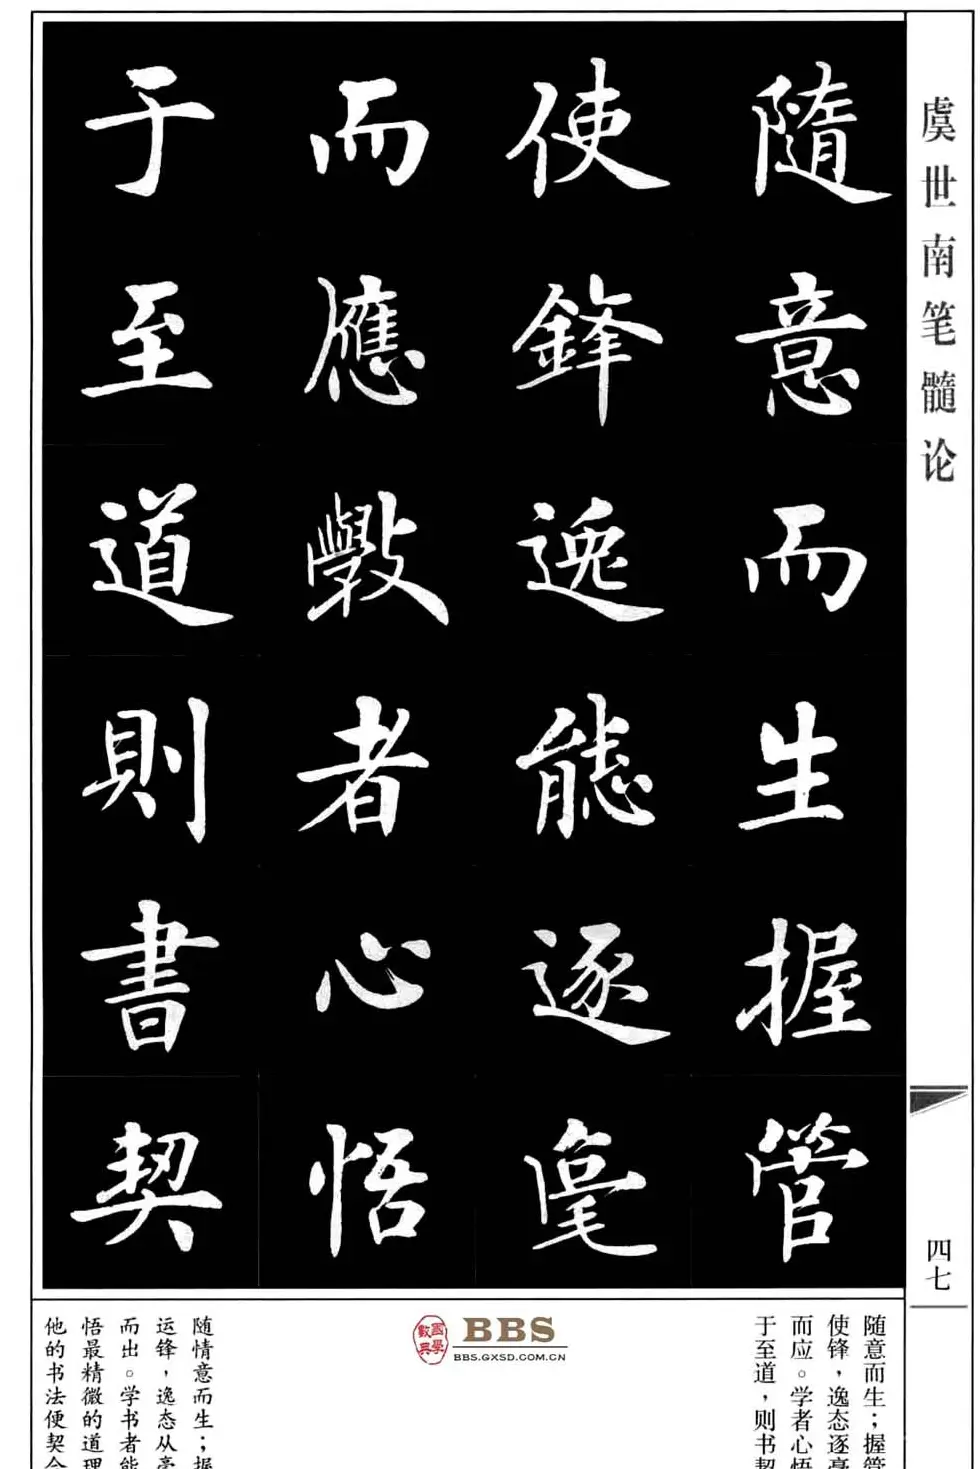 虞世南笔髓论
隨意而生握管
使鋒逸態逐毫
而應斆者心悟
于至道則書契
四七
随意而生；握管
使锋，逸态逐毫
而应。学者心悟
于至道，则书契
國學數典
BBS
BBS.GXSD.COM.CN
随情意而生；握
运锋，逸态从毫
而出。学书者能
悟最精微的道理
他的书法便契合